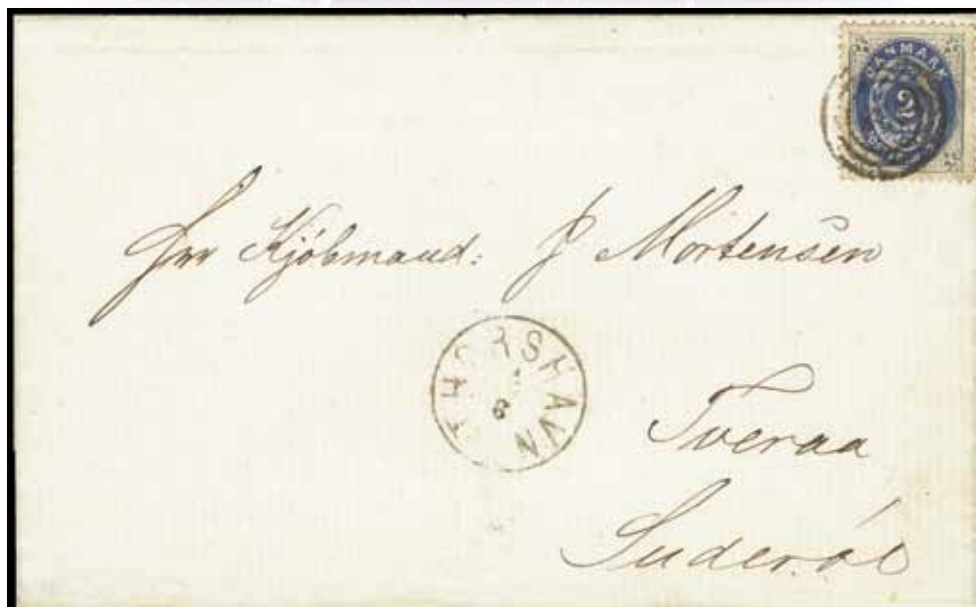 DANMARK
2
Hrr Kjöbmand: J Mortensen
THORSHAVN
6
Tveraa
Suderöe